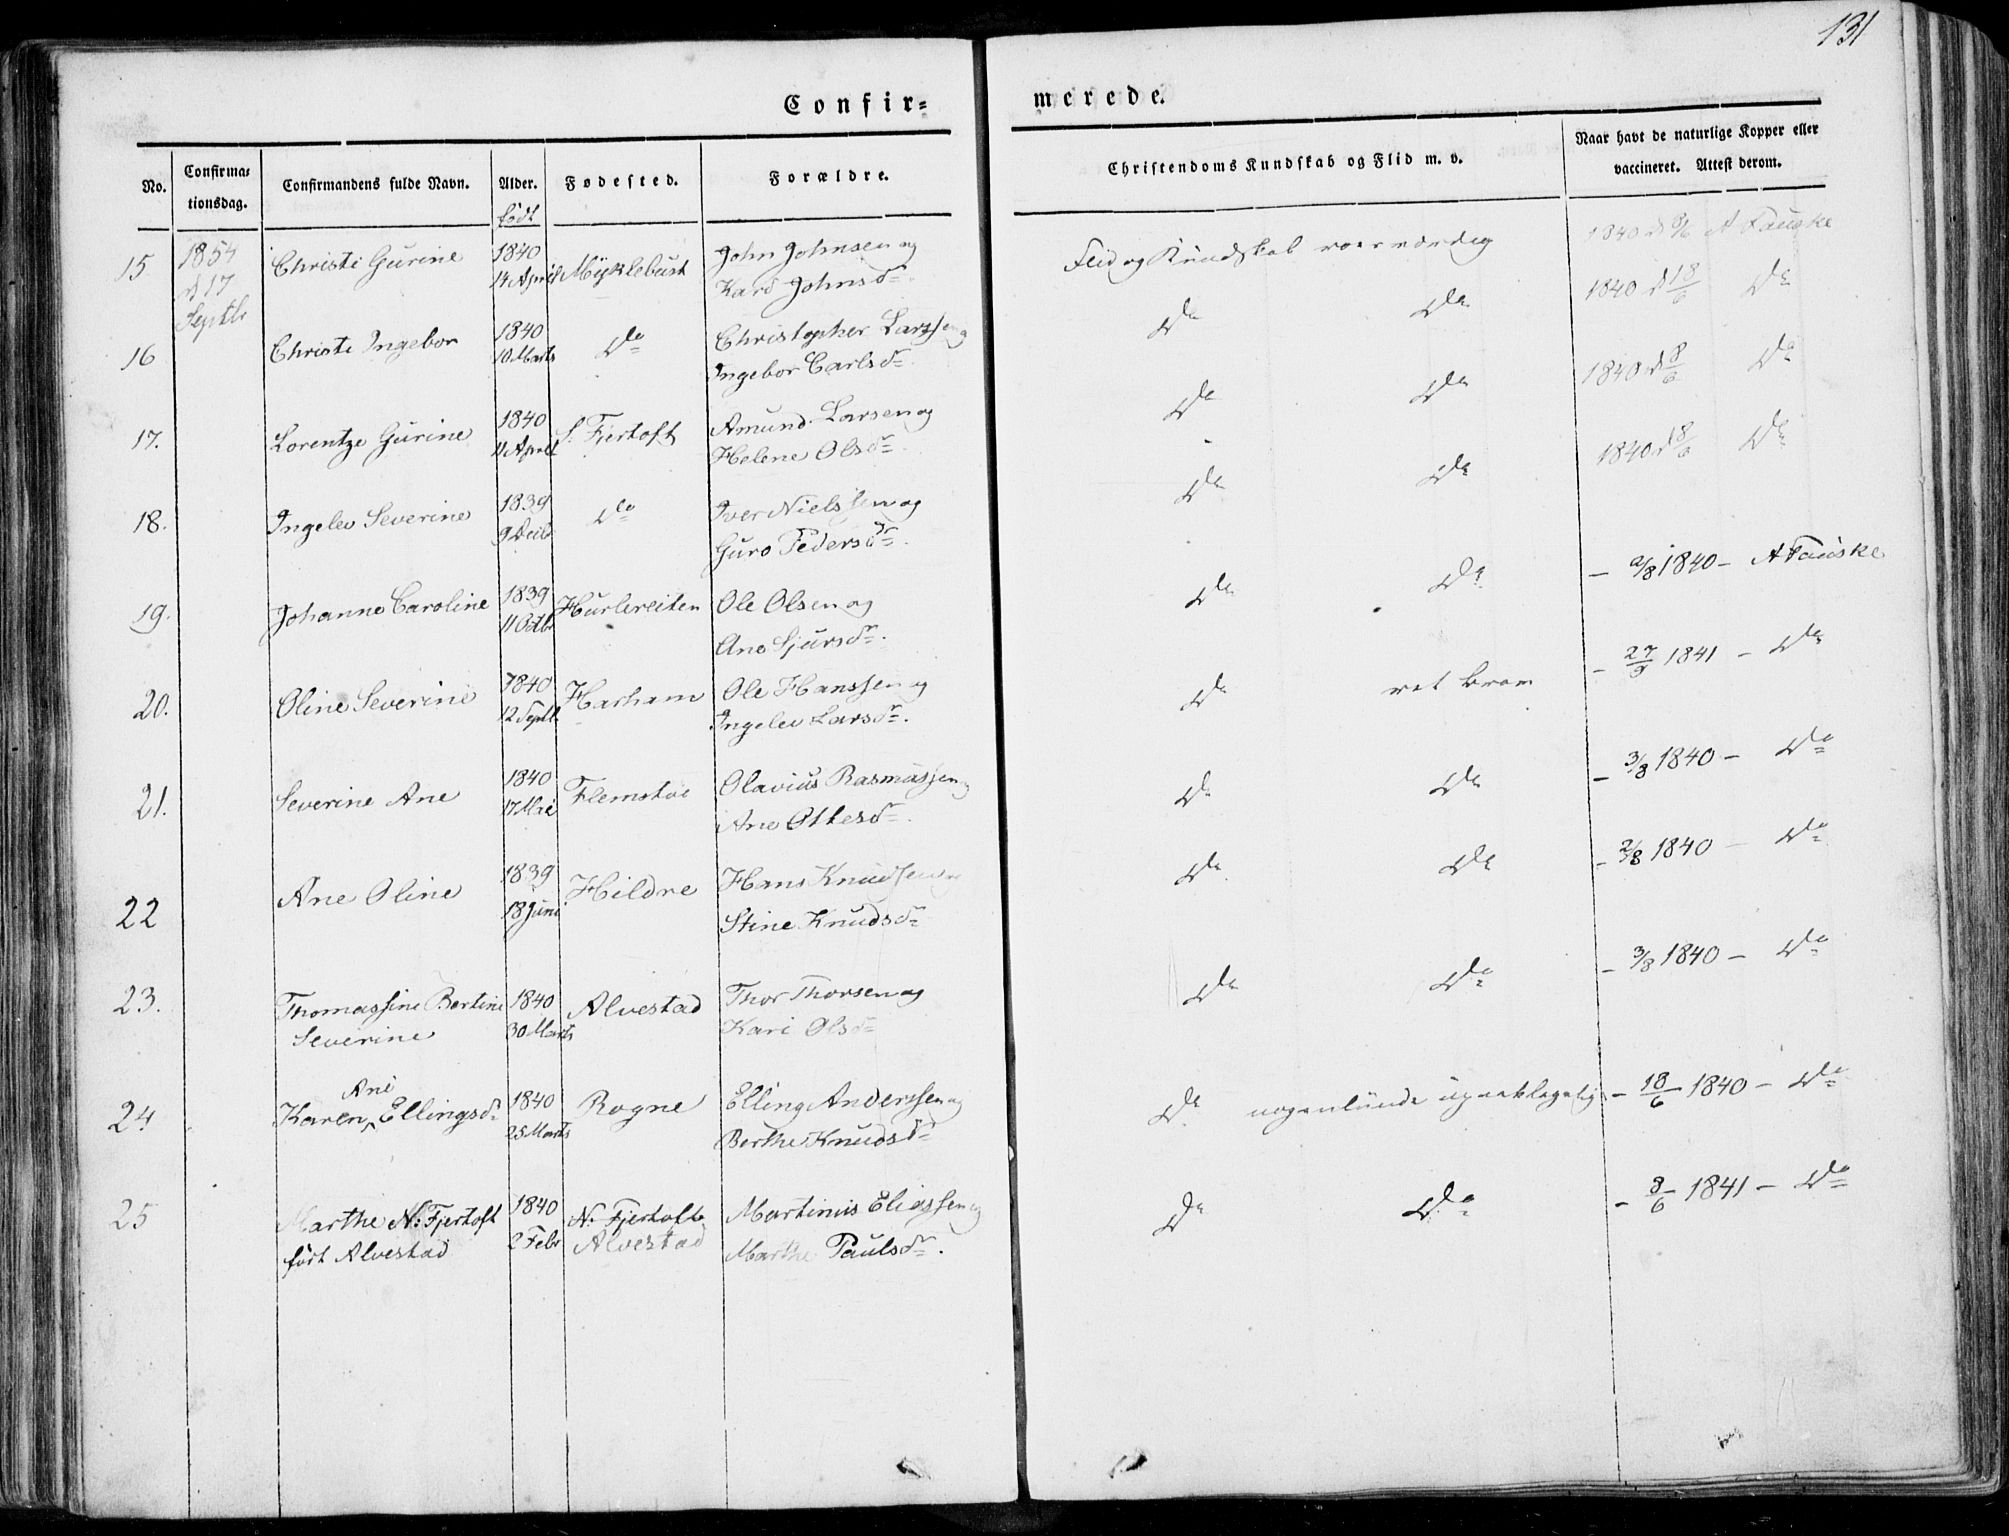 131
Confir=
merede.
No.
Confirma=
tionsdag.
Confirmandens fulde Navn.
Alder.
født
Fødested.
Forældre.
Christendoms Kundskab og Flid m. v.
Naar havt de naturlige Kopper eller
vaccineret. Attest derom.
15 1854 Christi Gurine 1840 Myklebust John Johnsen og Flid og Kundskab 1840 A Fauske
d 17 14 April Johnsdr
Septb
16 Christi Ingebor 1840 do Christopher Larssen og do do 1840 d 18/6 do
10 Marts Ingebor Carlsdr
17. Lorentze Gurine 1840 S. Fjertoft Amund Larsen og do do 1840 d 8/6 do
11 April Helene Olsdr
18. Ingelev Severine 1839 do Iver Nielssen og do do 1840 d 8/6 do
9 Decbr Guro Pedersdr
19. Johanne Caroline 1839 Hurlereiten Ole Olsen og do do – 2/8 1840 – A Fauske
11 Octbr Ane Sjursdr.
20. Oline Severine 1840 Harham Ole Hanssen og do ret brav – 27/9 1841 – do
12 Septb. Ingelev Larsdr.
21. Severine Ane 1840 Flemstøe Olavius Rasmussen og do do – 3/8 1840 – do
17 Mai Ane Ottesdr
22 Ane Oline 1839 Hildre Hans Knudsen og do do – 2/8 1840 – do
18 Juni Stine Knudsdr
23. Thomassine Bertine 1840 Alvestad Thor Thorsen og do do – 3/8 1840 – do
Severine 30 Marts Kari Olsdr
24. Karen Ane Ellingsdr 1840 Rogne Elling Anderssen og do nogenlunde upaaklagelig – 18/6 1840 – do
25 Marts Berthe Knudsdr
25 Marthe N: Fjertoft 1840 N: Fjertoft Martinus Eliassen og do do – 8/6 1841 – do
født Alvestad 2 Febr Alvestad Marthe Paulsdr.